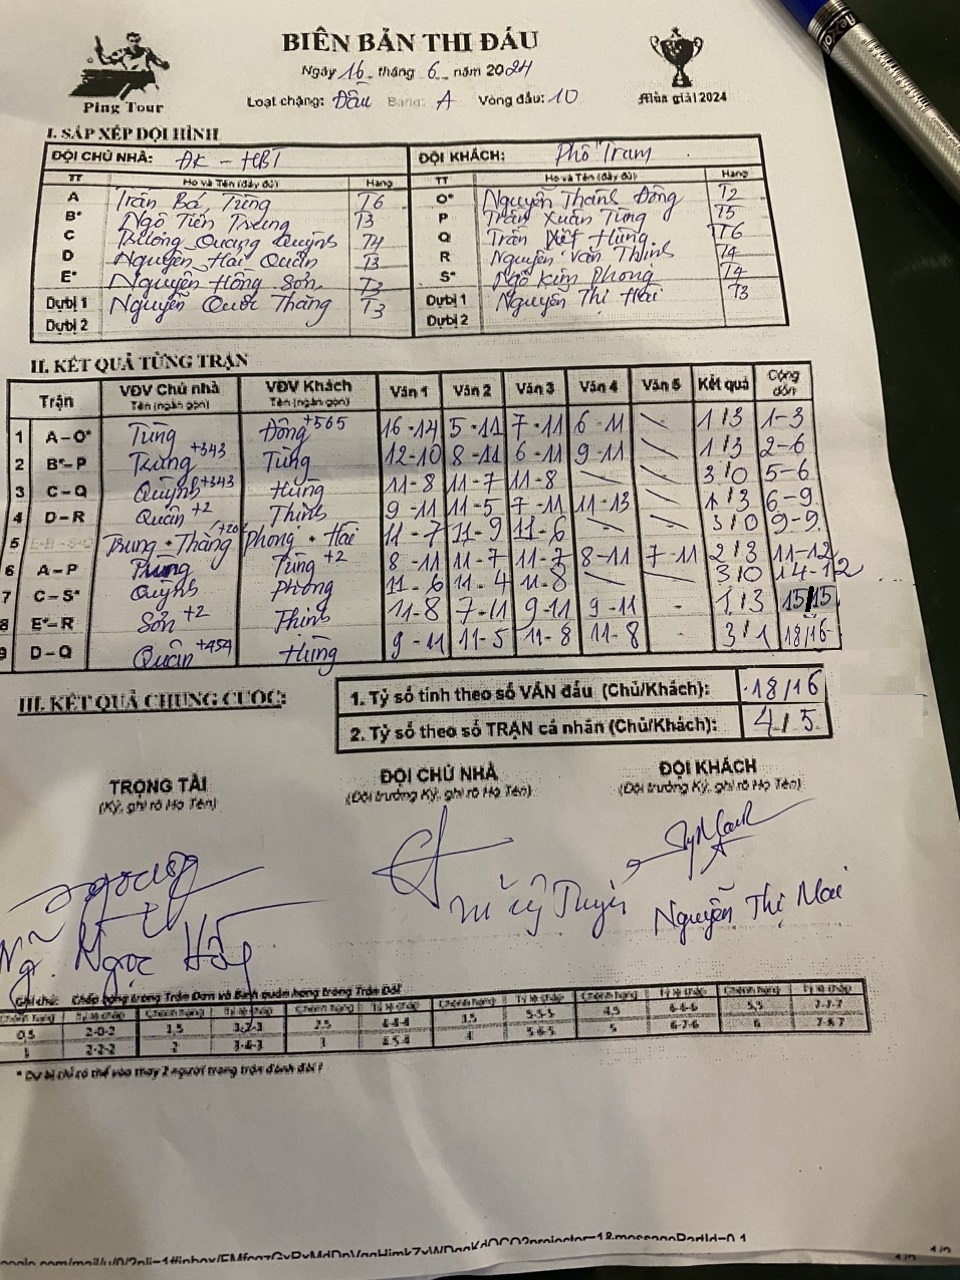 BIÊN BẢN THI ĐẤU
Ngày 16 tháng 6 năm 2024
Loại chặng: Đấu Bảng: A Vòng đấu: 10
Ping Tour
Mùa giải 2024
I. SẮP XẾP ĐỘI HÌNH
ĐỘI CHỦ NHÀ: ĐK - HBT ĐỘI KHÁCH: Phố Tram
TT Họ và Tên (đầy đủ) Hạng TT Họ và Tên (đầy đủ) Hạng
A Trần Bá Tùng T6 O* Nguyễn Thành Đông T2
B* Ngô Tiến Trung T3 P Trần Xuân Tùng T5
C Trương Quang Quỳnh T4 Q Trần Việt Hùng T6
D Nguyễn Hải Quân T3 R Nguyễn Văn Thịnh T4
E* Nguyễn Hồng Sơn T3 S* Ngô Kim Phong T4
Dự bị 1 Nguyễn Quốc Thắng T3 Dự bị 1 Nguyễn Thị Hải T3
Dự bị 2 Dự bị 2
II. KẾT QUẢ TỪNG TRẬN
Trận VĐV Chủ nhà Tên (ngắn gọn) VĐV Khách Tên (ngắn gọn) Ván 1 Ván 2 Ván 3 Ván 4 Ván 5 Kết quả Cộng dồn
1 A – O* Tùng Đông +565 16-14 5-11 7-11 6-11 1/3 1-3
2 B* – P Trung +343 Tùng 12-10 8-11 6-11 9-11 1/3 2-6
3 C – Q Quỳnh +343 Hùng 11-8 11-7 11-8 3/0 5-6
4 D – R Quân +2 Thịnh 9-11 11-5 7-11 11-13 1/3 6-9
5 Trung + Thắng Phong + Hải 11-7 11-9 11-6 3/0 9-9
6 A – P Tùng +2 8-11 11-7 11-7 8-11 7-11 2/3 11-12
7 C – S* Quỳnh Phong 11-6 11-4 11-8 3/0 14-12
8 E* – R Sơn +2 Thịnh 11-8 7-11 9-11 9-11 - 1/3 15/15
9 D – Q Quân +454 Hùng 9-11 11-5 11-8 11-8 - 3/1 18/16
III. KẾT QUẢ CHUNG CUỘC:
1. Tỷ số tính theo số VÁN đấu (Chủ/Khách): 18/16
2. Tỷ số theo số TRẬN cá nhân (Chủ/Khách): 4/5
TRỌNG TÀI ĐỘI CHỦ NHÀ ĐỘI KHÁCH
(Ký, ghi rõ Họ Tên) (Đội trưởng Ký, ghi rõ Họ Tên) (Đội trưởng Ký, ghi rõ Họ Tên)
Ngọc Nguyễn Thị Mai
Ghi chú: Chấp bóng trong Trận Đơn và Bình quân hạng trong Trận Đôi
0,5 2-0-2 1,5 3-2-3 2,5 4-4-4 3,5 5-5-5 4,5 6-6-6 5,5 7-7-7
1 2-2-2 2 3-4-3 3 4-5-4 4 5-6-5 5 6-7-6 6 7-8-7
* Dự bị chỉ có thể vào thay 2 người trong trận đánh đôi !